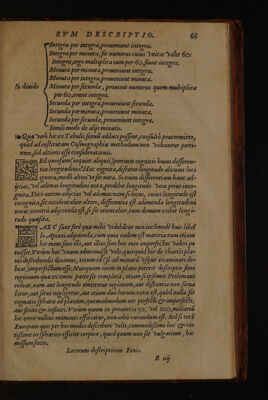 RVM DESCRIPTIO. 66
Integra per integra, proueniunt integra.
Integra per minuta, sit numerus cuius vnitas valet 60:
Integra, ergo multiplica eum per 60, fiunt integra.
Minuta per integra, proueniunt minuta.
Minuta per minuta, proueniunt integra.
Si diuido Minuta per secunda, proueniunt numerus quem multiplica
per 60, erunt integra.
Secunda per integra, proueniunt secunda.
Secunda per minuta, proueniunt minuta.
Secunda per secunda, proueniunt integra.
Simili modo de alijs minutis.
Qua verò hic ex Tabulis sinuũ adduci possent, consultò prætermitto,
quòd ad institutam Cosmographiæ methodum non videantur perti-
nere, sed altioris esse considerationis.
SEd quorsum (inquiet aliquis) pertinet cognitio huius differen-
tiæ longitudinis? Hac cognita, disietur longitudo alicuius loci
ignota, modò alterius sit nota. Si enim differentiam hanc ad-
ijcias, vel ademas longitudini notæ, prodibit longitudo vera prius inco-
gnita. Dico autem adijcias vel adimas: nam si locus, cuius longitudo est
incognita sit occidentalior altero, differentia est adimenda longitudini
notæ: econtrà adijcienda est, si sit orientalior, tum demum exibit longi-
tudo quæsita.
HAEC sunt ferè quæ mihi videbatur non incommodè huic libel-
lo Apiani adijcienda, cum quia
hoc meus sine illis, aut illæ sine hoc meo imperfectus videri po
tuisset. Verùm hoc vnum admonuisse volo, quicquid hoc de chartis pla-
nis describendis diximus, totum id (si ad mundi typũ examinetur de-
beat,) imperfectum est. Nunquam enim in plano poterit describi ferè
regionum quæ ex omni parte sit completa, etiam si ipsemet Ptolemæus
redeat, nam aut longitudo
bitur, aut situs negligetur, aut etiam duo horum: ratio est, quod nulla sit
cognatio sphæræ ad planum, quemadmodum nec perfecti & imperfecti,
aut finiti & infiniti. Verùm quum in prouintia 50, vel 100, miliarium
hic error nullius momenti efficiatur, non adeò curandum est. Sed si totã
Europam quis per hos modos describere velit, commodissimè hoc & cer-
tissimè in sphærico efficiet corpore, quod quum non sit vulgarium, hic
missum facio.
Locorum descriptionis Finis.
R iij